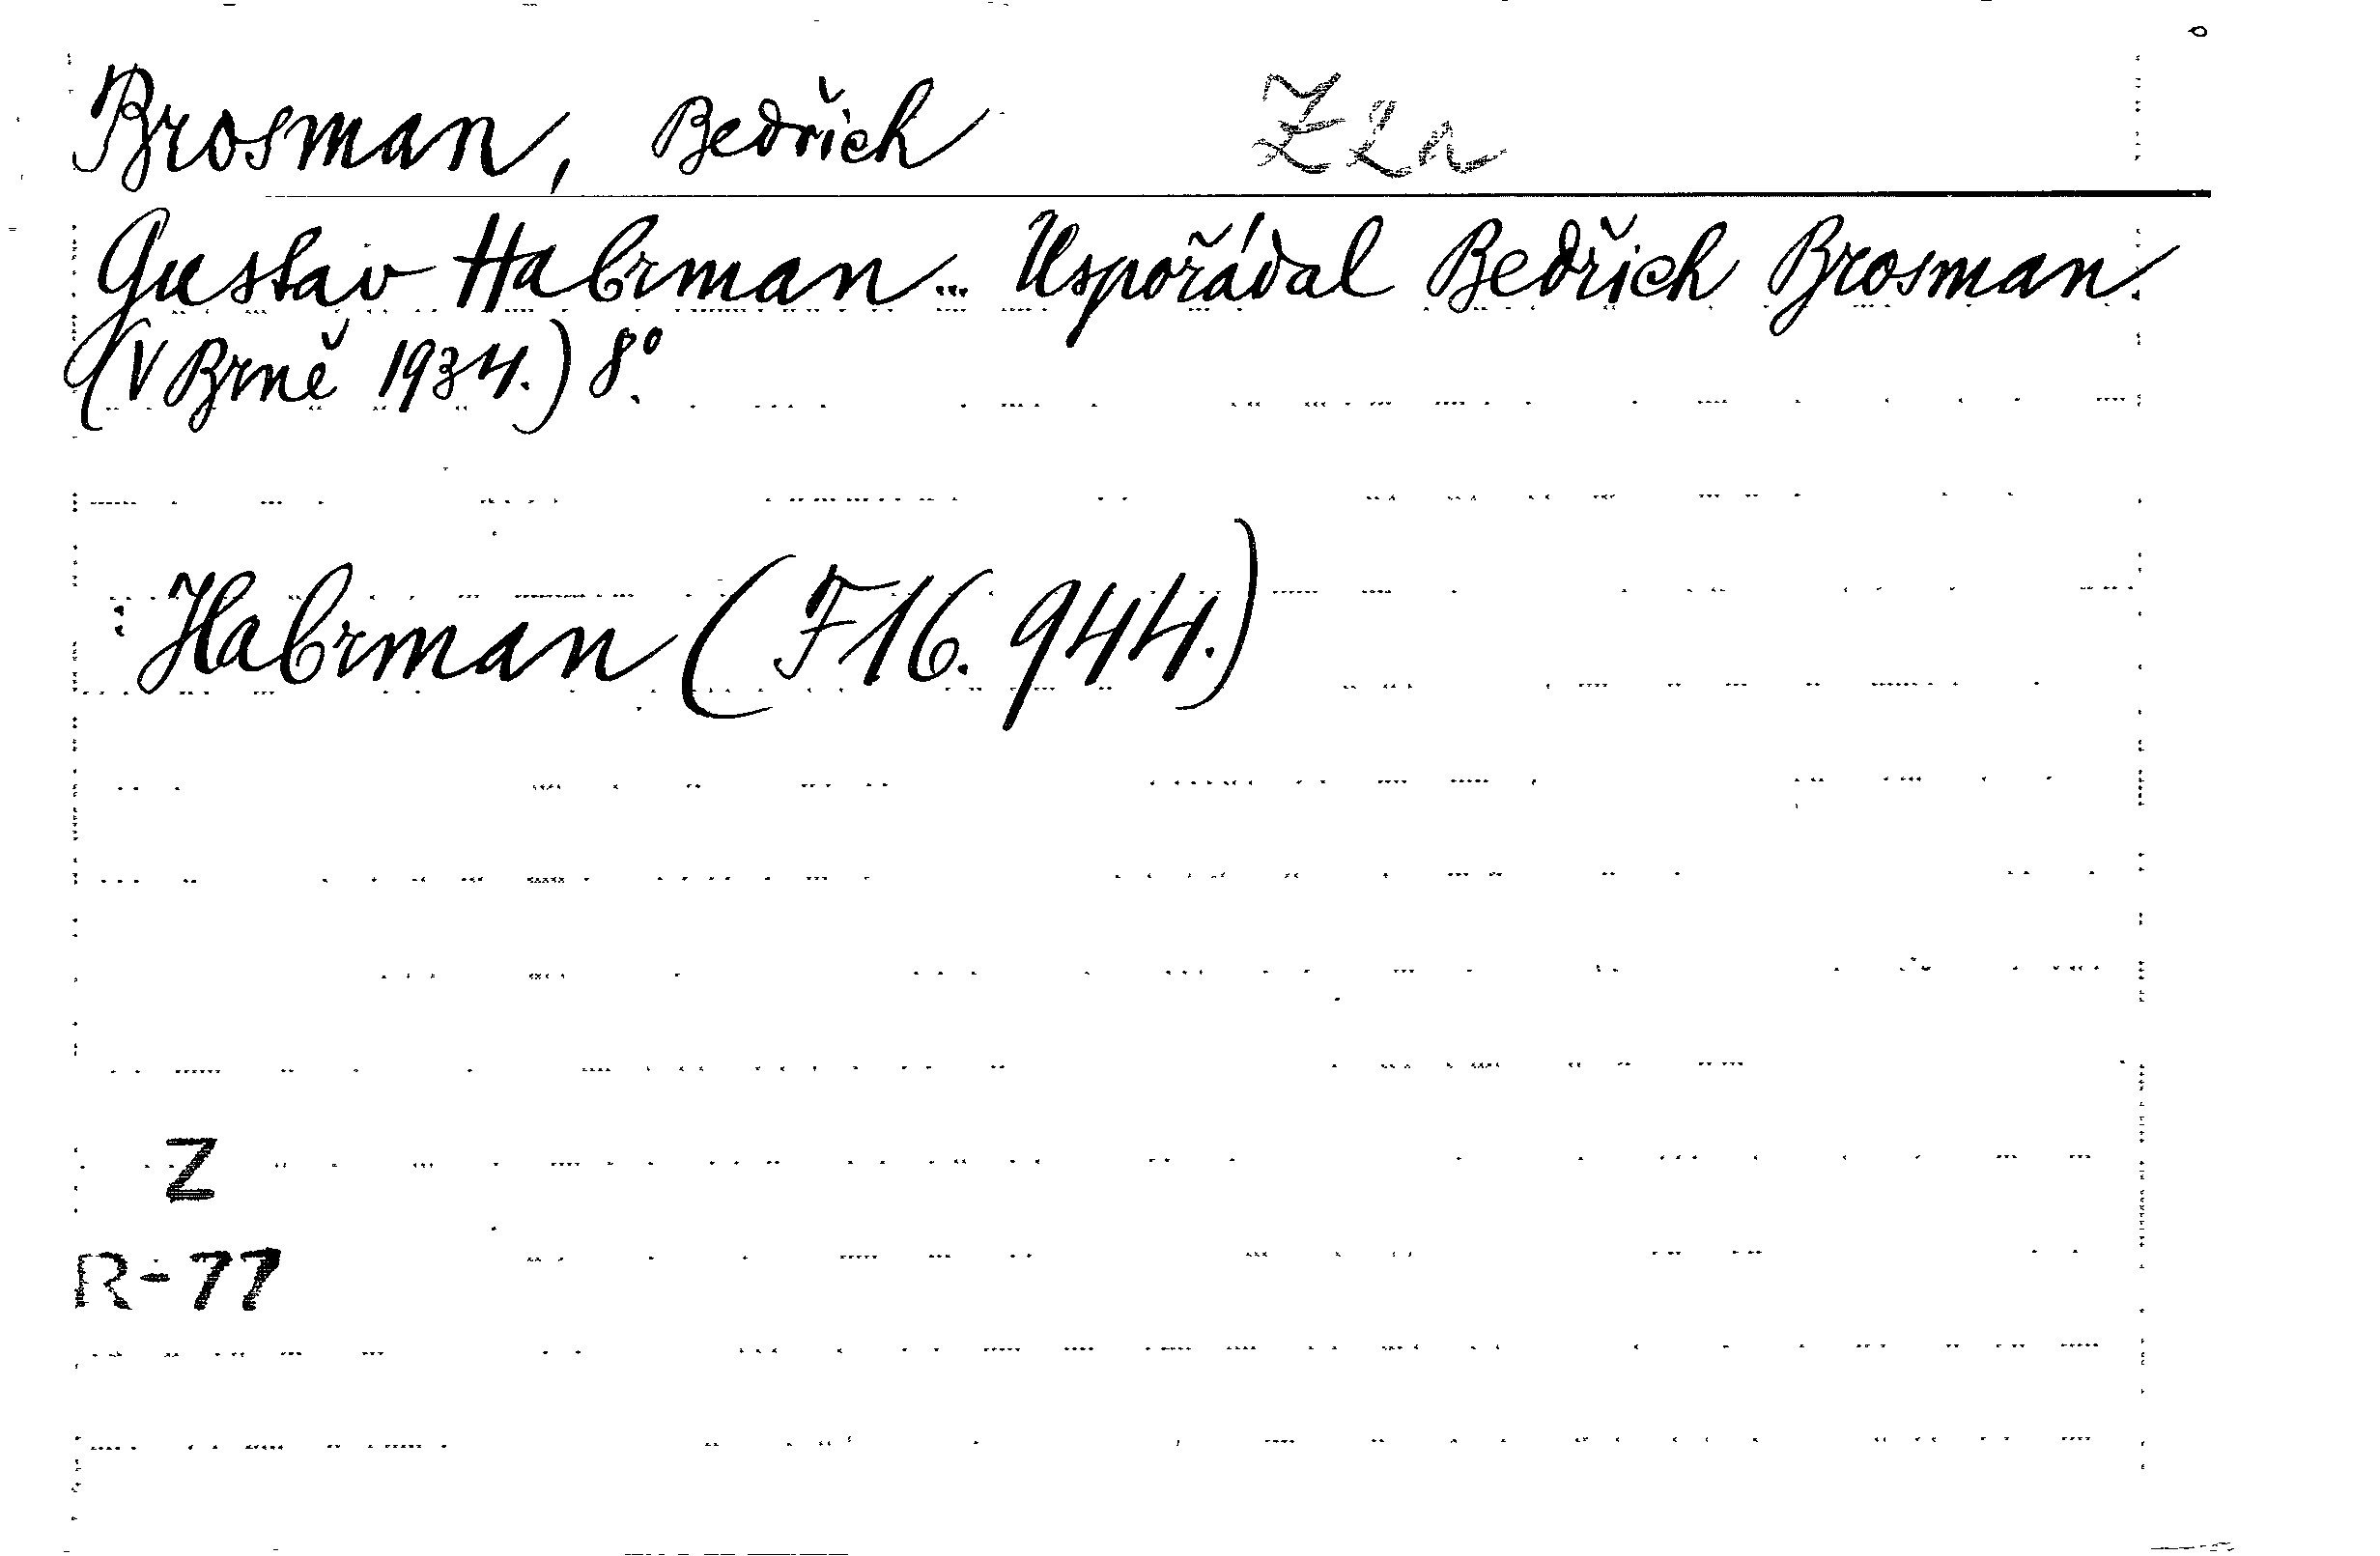 Brosman, Bedřich Z2a
Gustav Habrman... Uspořádal Bedřich Brosman.
(V Brně 1934.) 8°.
: Habrman (F16.944.)
Z
R-77